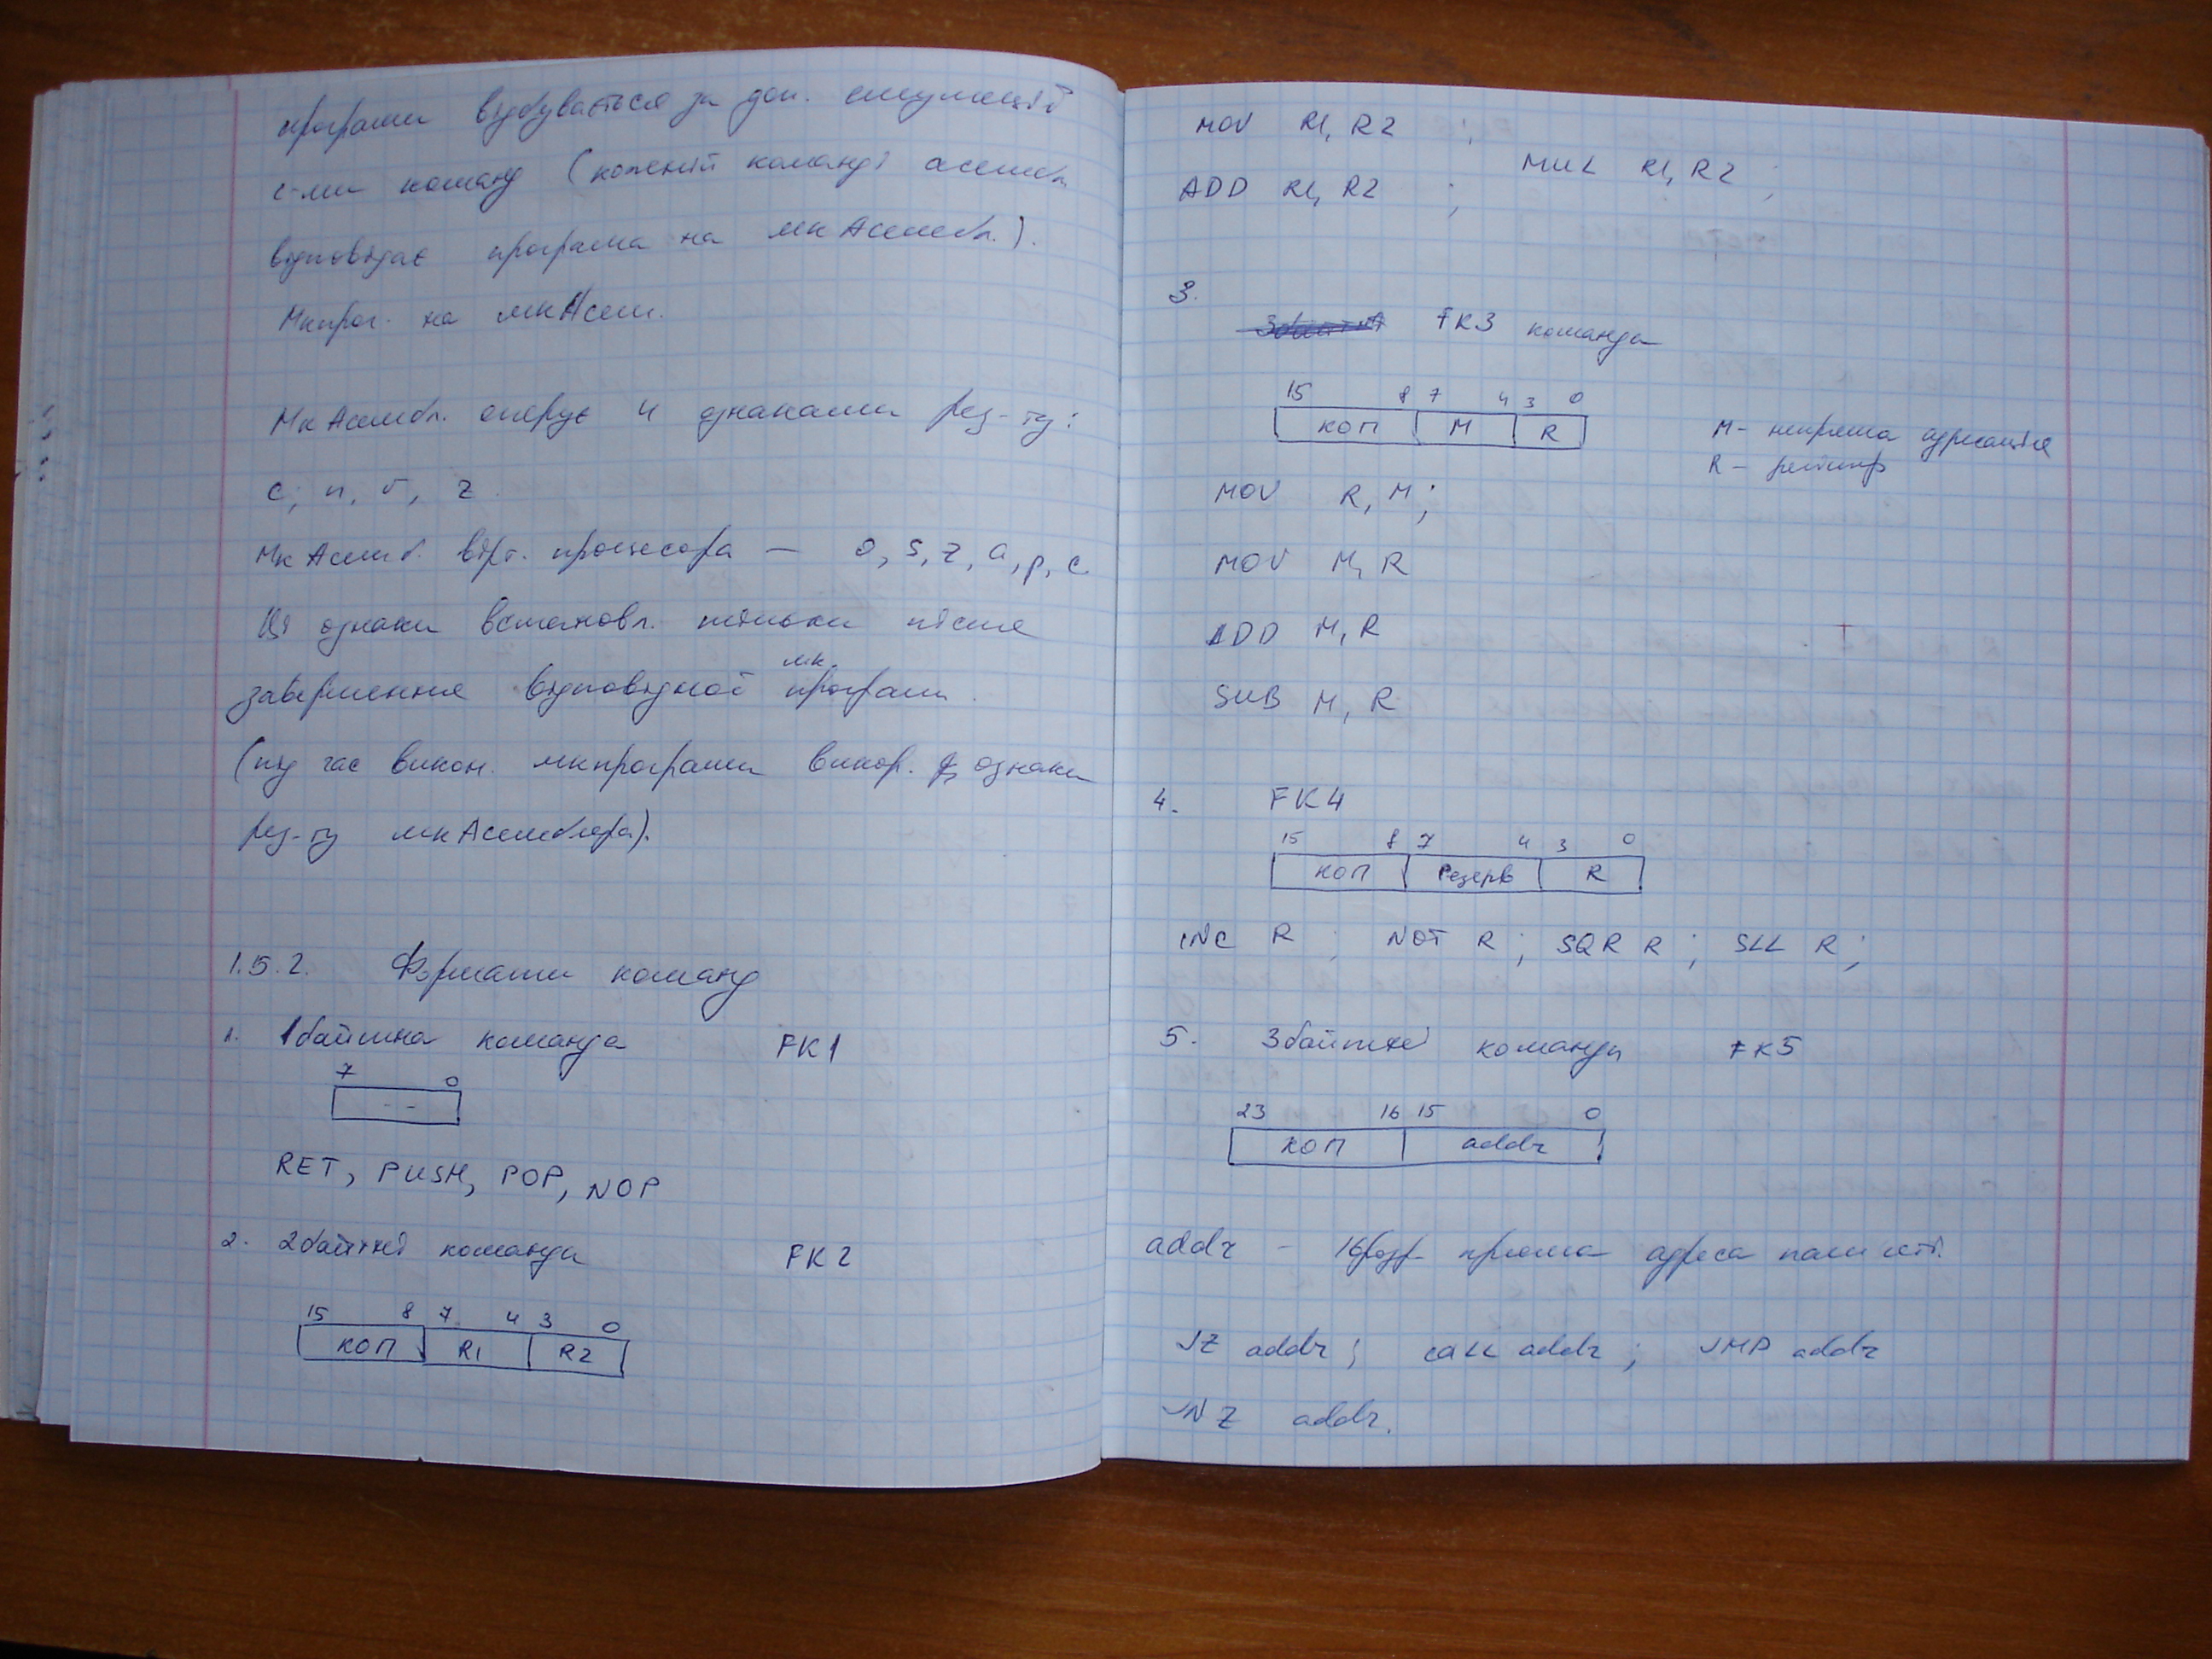 програми відбувається за доп. емуляції
с-ми команд (кожній команді асемб.
відповідає програма на мкАсемб.).
Мкпрог. на мкАсем.
МкАсембл. оперує 4 ознаками рез-ту:
c, n, v, z.
МкАсемб. вірт. процесора — o, s, z, a, p, c
Ці ознаки встановл. тільки після
завершення відповідної мкпрограми.
(під час викон. мкпрограми викор. ознаки
рез-ту мкАсемблера).
1.5.2. Формати команд
1. 1байтна команда FK1
7 0
--
RET, PUSH, POP, NOP
2. 2байтні команди FK2
15 8 7 4 3 0
КОП R1 R2
MOV R1, R2 ;
MUL R1, R2 ;
ADD R1, R2 ;
3.
FK3 команда
15 8 7 4 3 0
КОП M R
M - непряма адресація
R - регістр
MOV R, M;
MOV M, R
ADD M, R
SUB M, R
4. FK4
15 8 7 4 3 0
КОП Резерв R
INC R ; NOT R ; SQR R ; SLL R ;
5. 3байтні команди FK5
23 16 15 0
КОП addr
addr - 16розр. пряма адреса пам'яті.
JZ addr ; CALL addr ; JMP addr
JNZ addr.